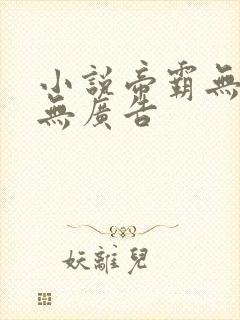 小說帝霸無
無廣告
妖離兒